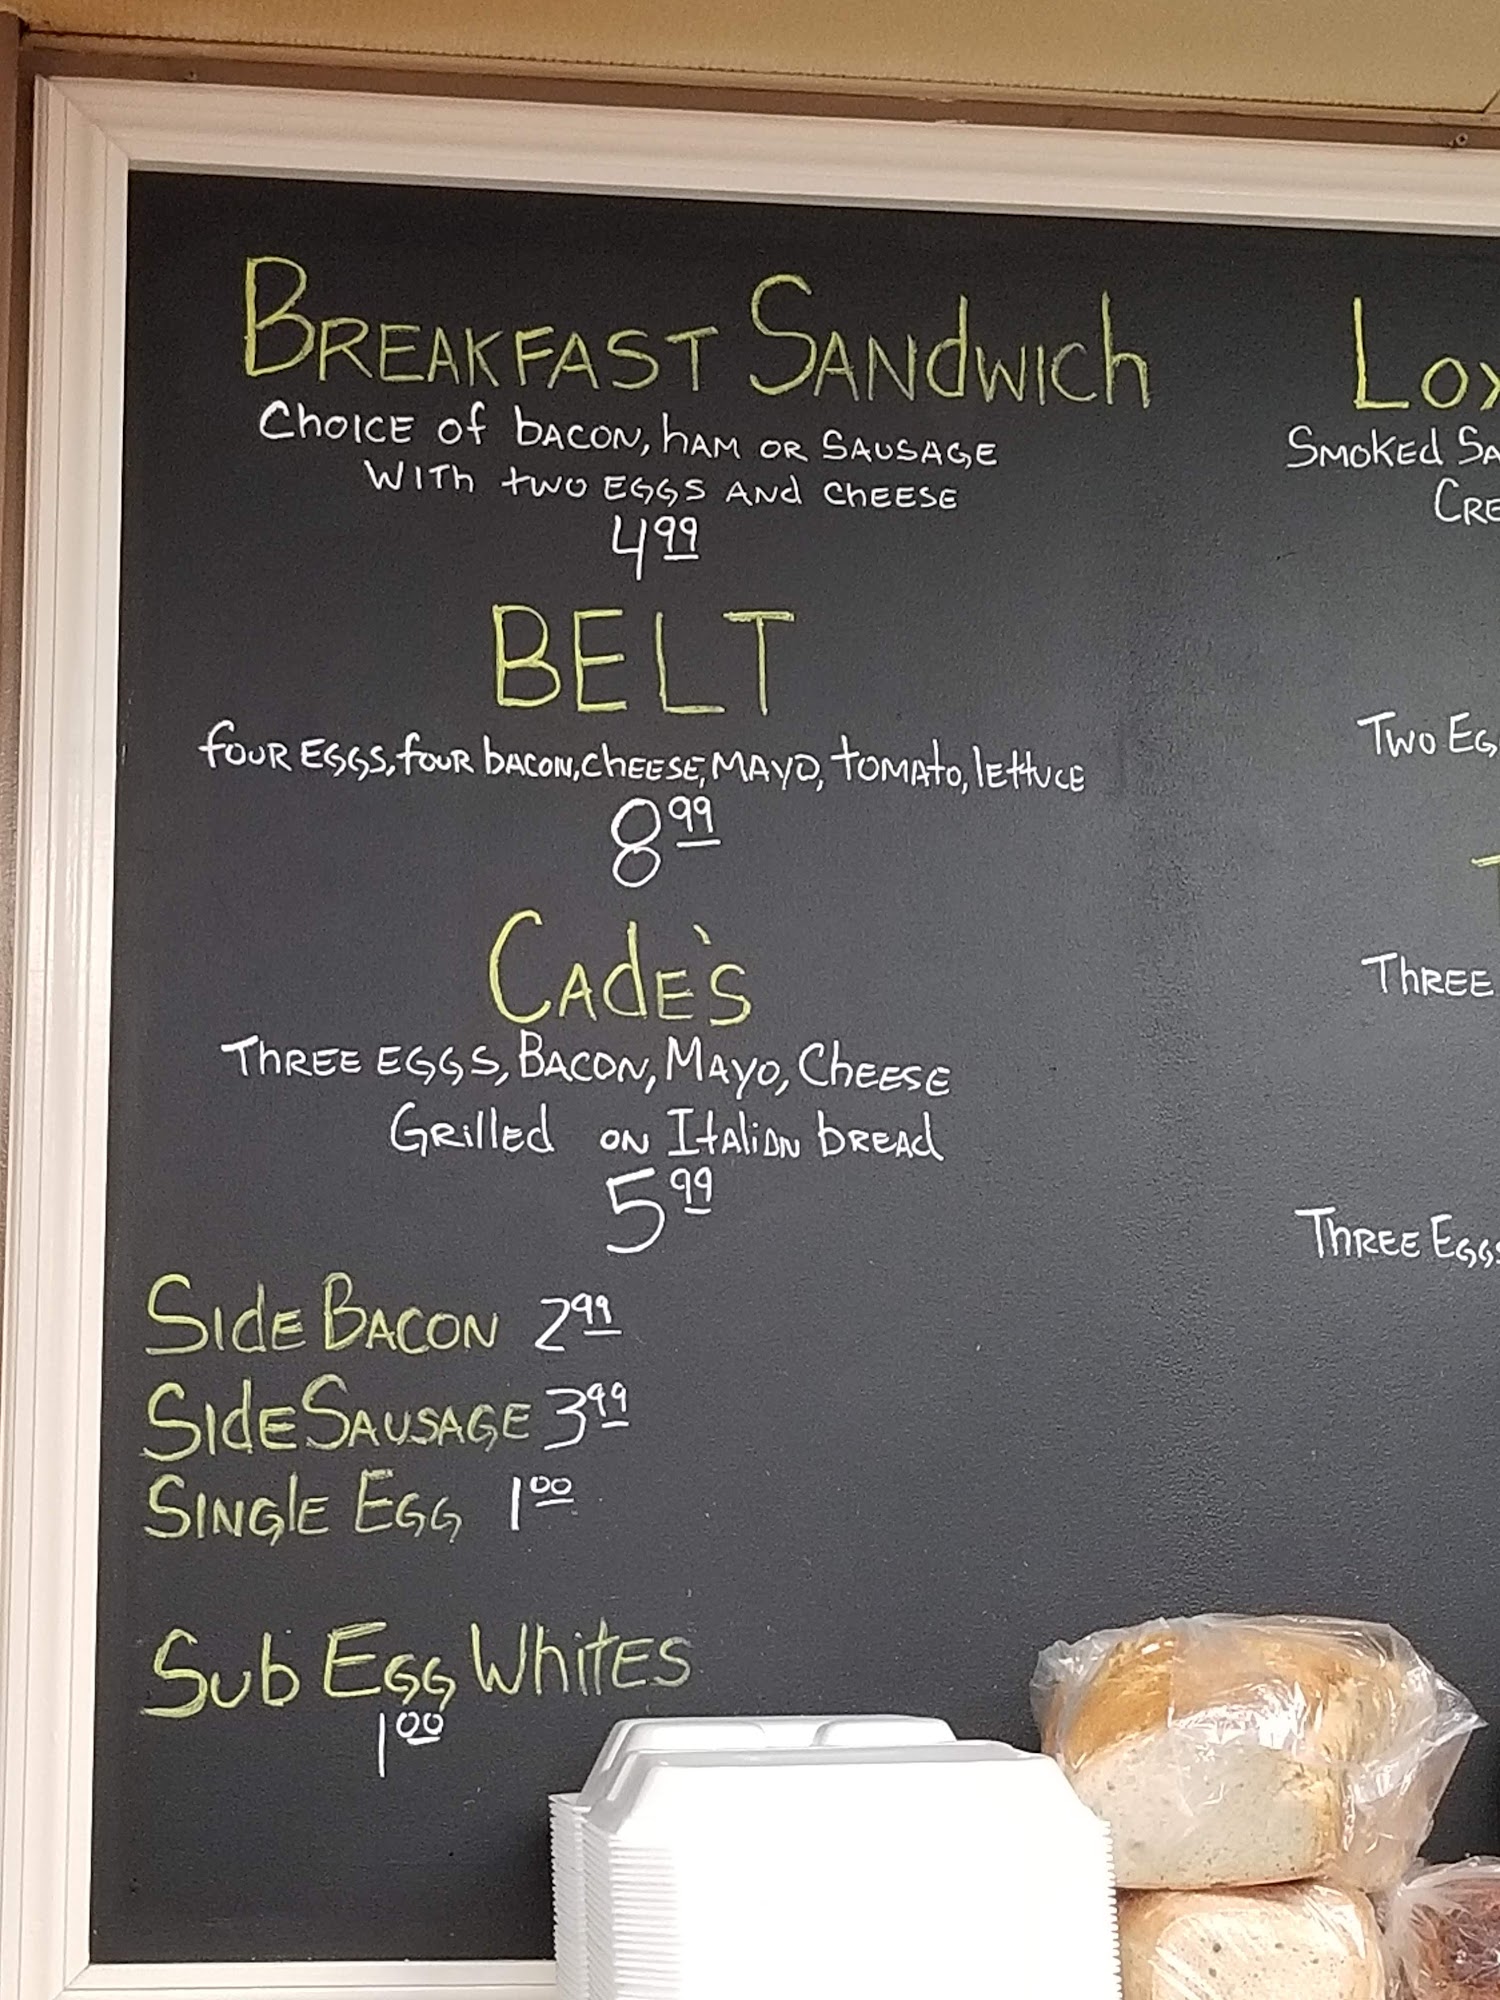 BREAKFAST SANDWICH
CHOICE of bACON, hAM OR SAUSAGE
WITh two EGGS ANd ChEESE
4.99
BELT
fouR EGGS, fouR bACON, ChEESE, MAYO, tOMAto, lEttuCE
8.99
CAdE's
ThREE EGGS, BACON, MAYO, ChEESE
GRillEd ON ItAliAN bREAd
5.99
SIdE BACON 2.99
SIdE SAUSAGE 3.99
SINGlE EGG 1.00
Sub EGG WhitES
1.00
SMOKEd
TWO
ThREE
ThREE EGGS